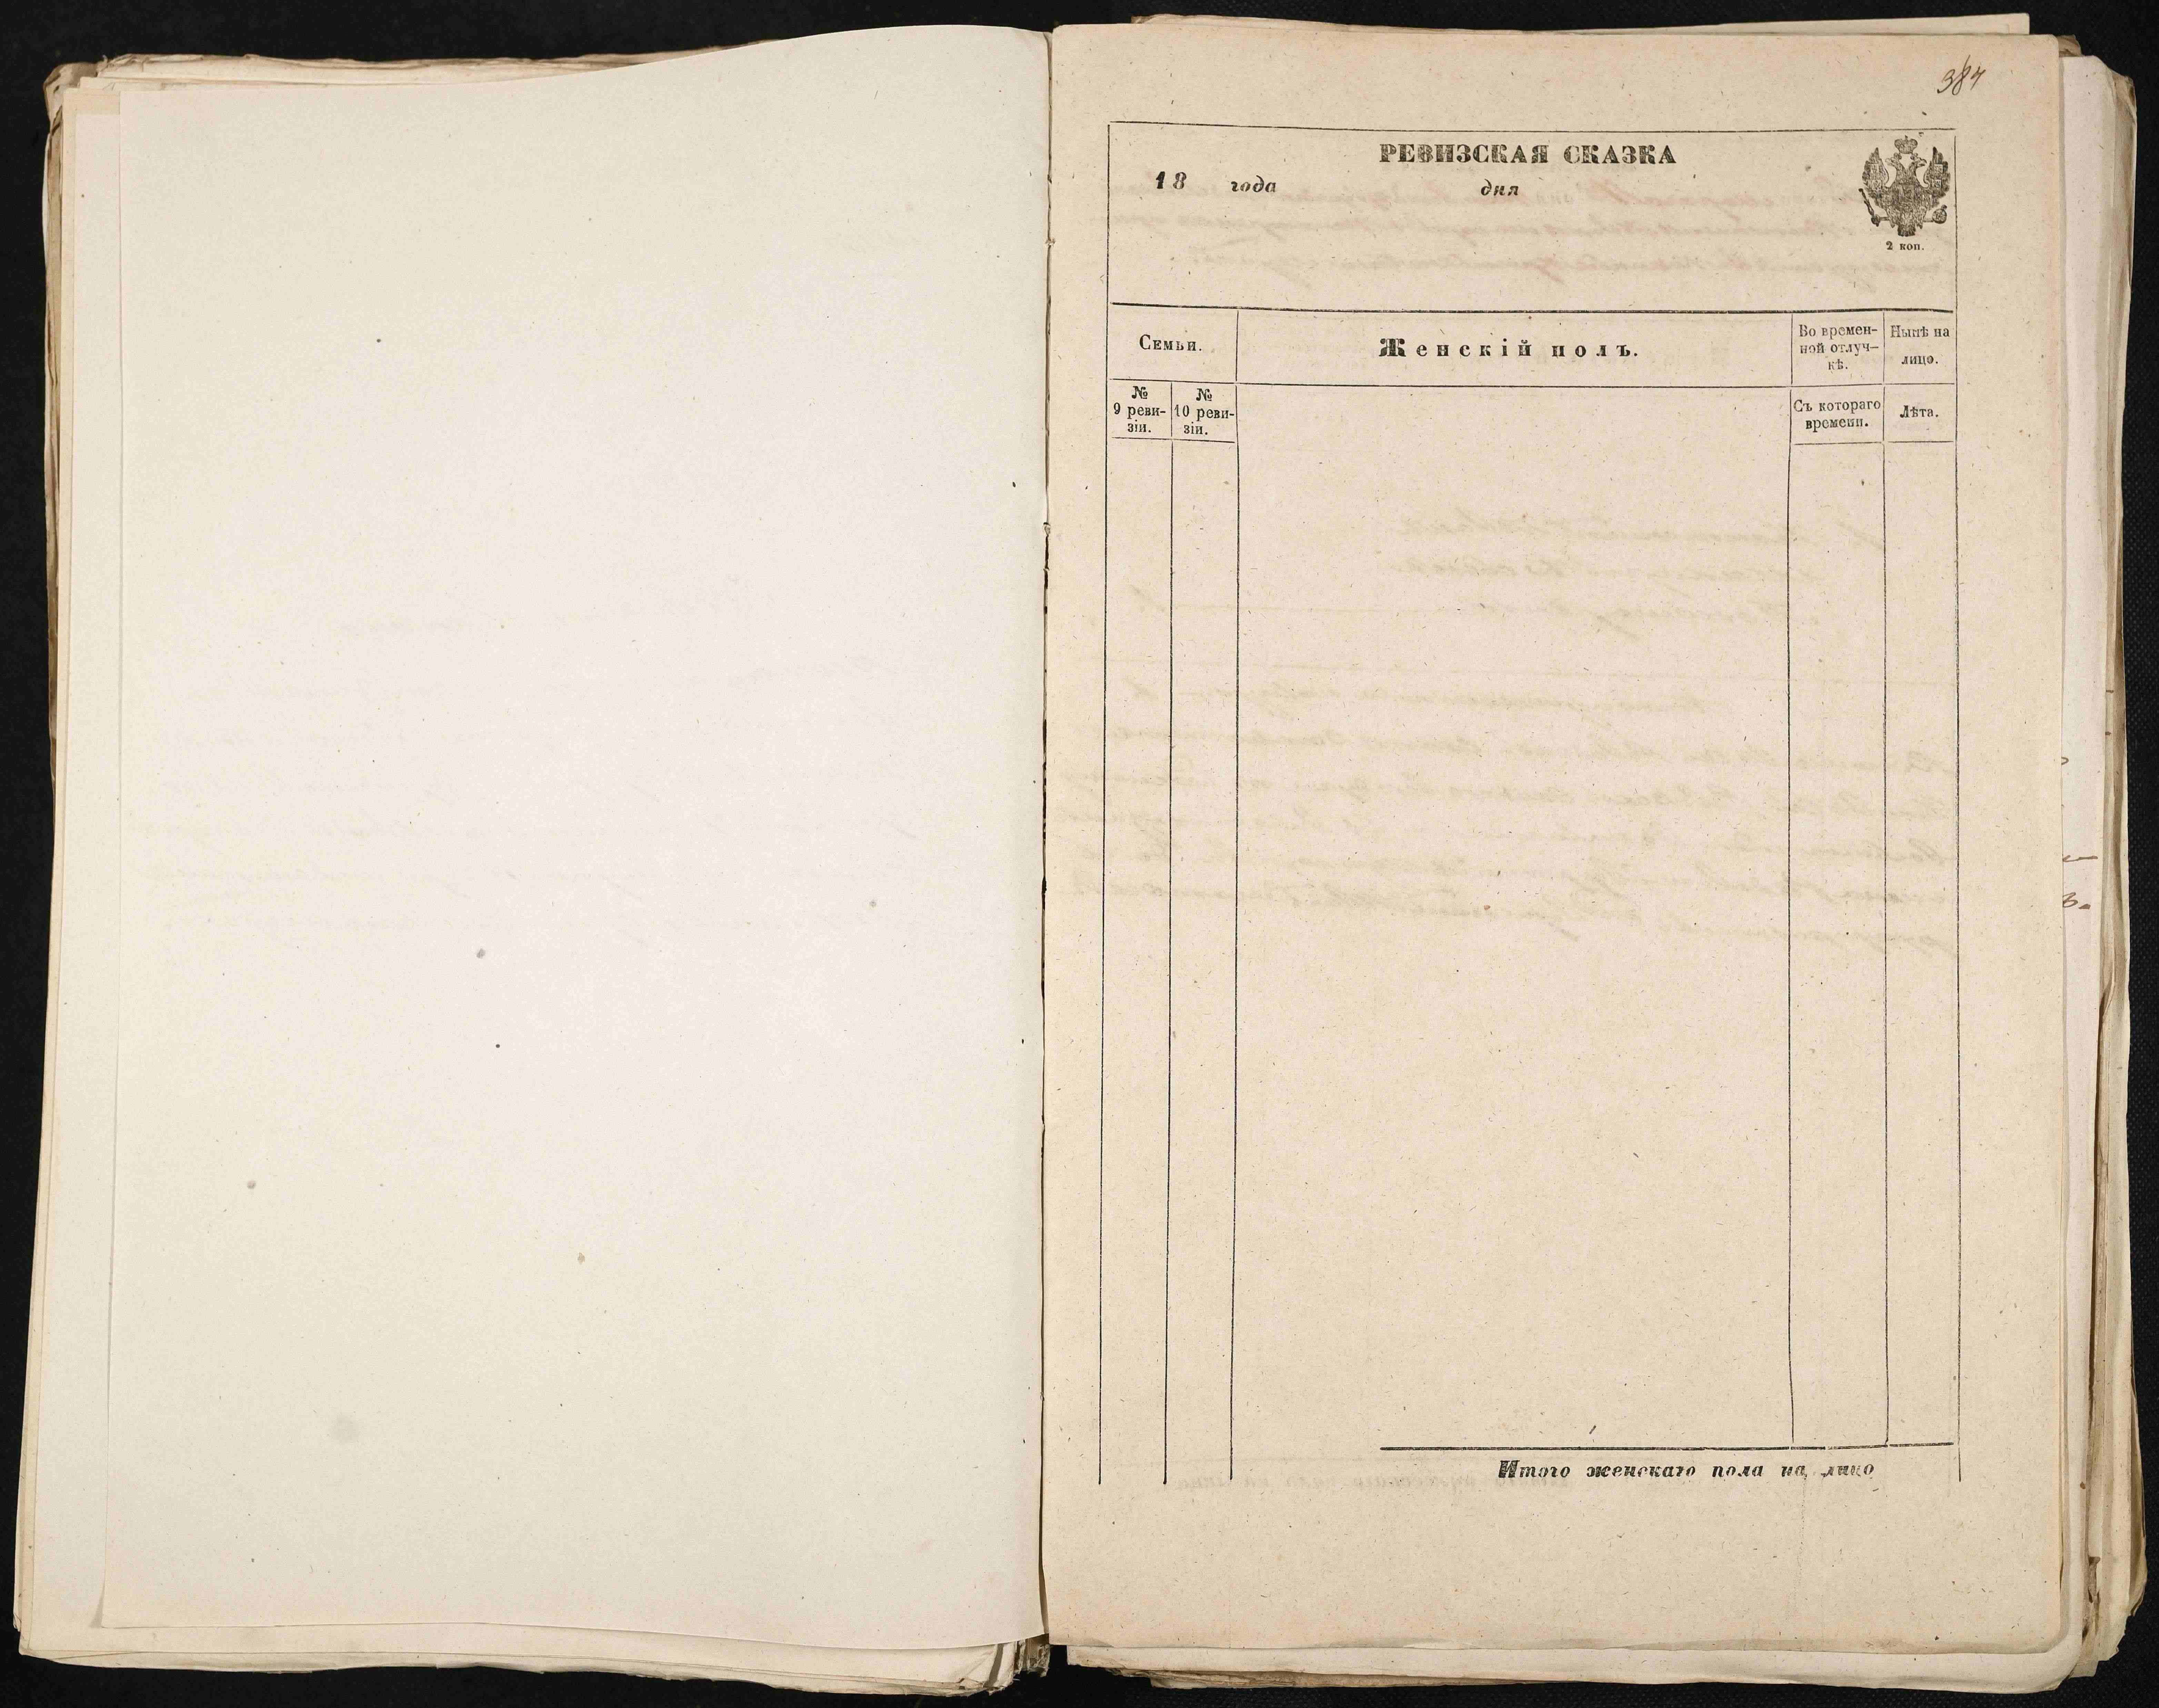 387
РЕВИЗСКАЯ СКАЗКА
18 года дня
2 коп.
Семьи.
Женскій полъ.
Во времен-
ной отлуч-
кѣ.
Нынѣ на
лицо.
№
9 реви-
зіи.
№
10 реви-
зіи.
Съ котораго
времени.
Лѣта.
Итого женскаго пола на лицо